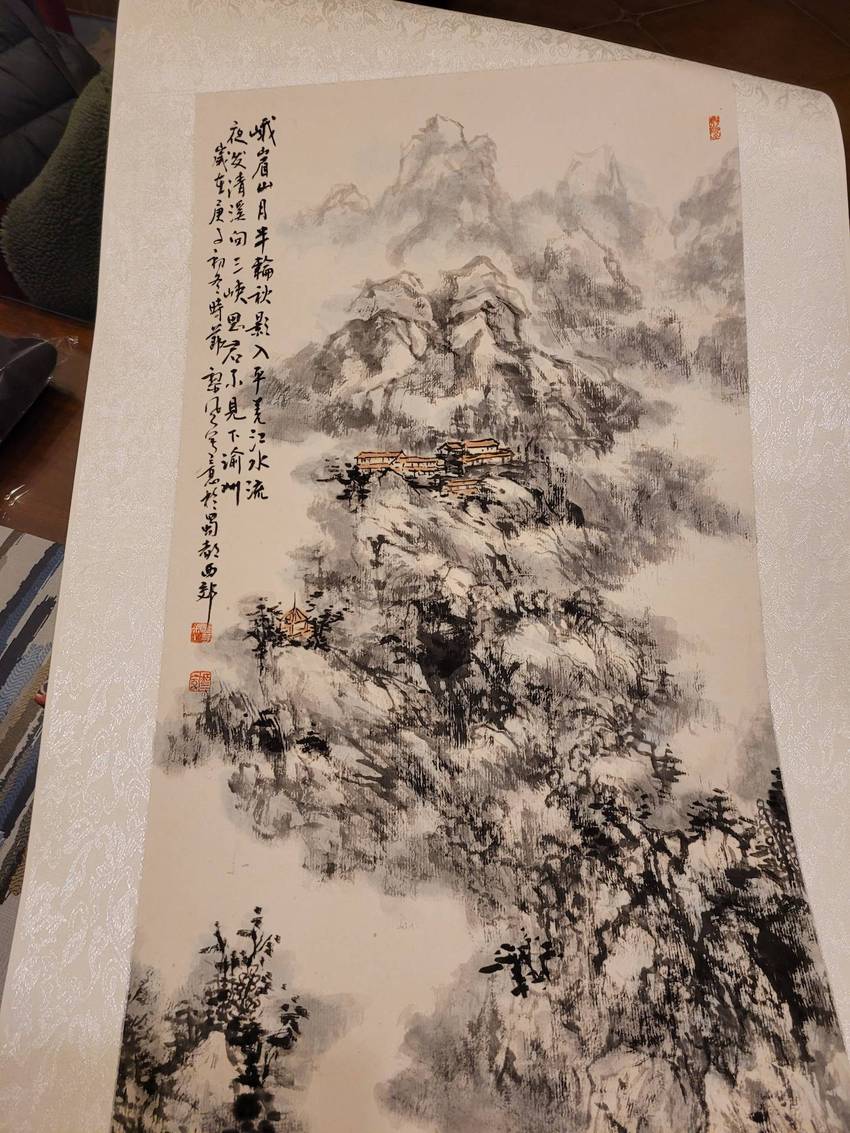 峨眉山月半輪秋影入平羌江水流
夜发清溪向三峡思君不見下渝州
歲在庚子初冬時節 写意於蜀都西郊